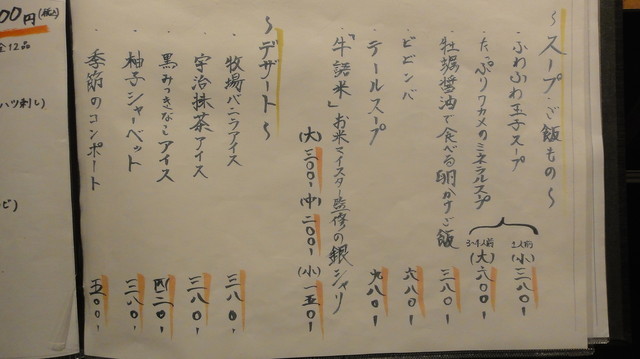 ～スープ・ご飯もの～
・ふわふわ玉子スープ
1人前(小)三八〇-
・たっぷりワカメのミネラルスープ
3〜4人前(大)六〇〇-
・牡蠣醤油で食べる卵かけご飯 三八〇-
・ビビンバ 六八〇-
・テールスープ 九八〇-
・「牛語米」お米マイスター監修の銀シャリ
(大)三〇〇-(中)二〇〇-(小)一五〇-
～デザート～
・牧場バニラアイス 三八〇-
・宇治抹茶アイス 三八〇-
・黒みつきなこアイス 四二〇-
・柚子シャーベット 三八〇-
・季節のコンポート 五〇〇-
00円(税込)
全12品
ハツ刺し)
ビ)